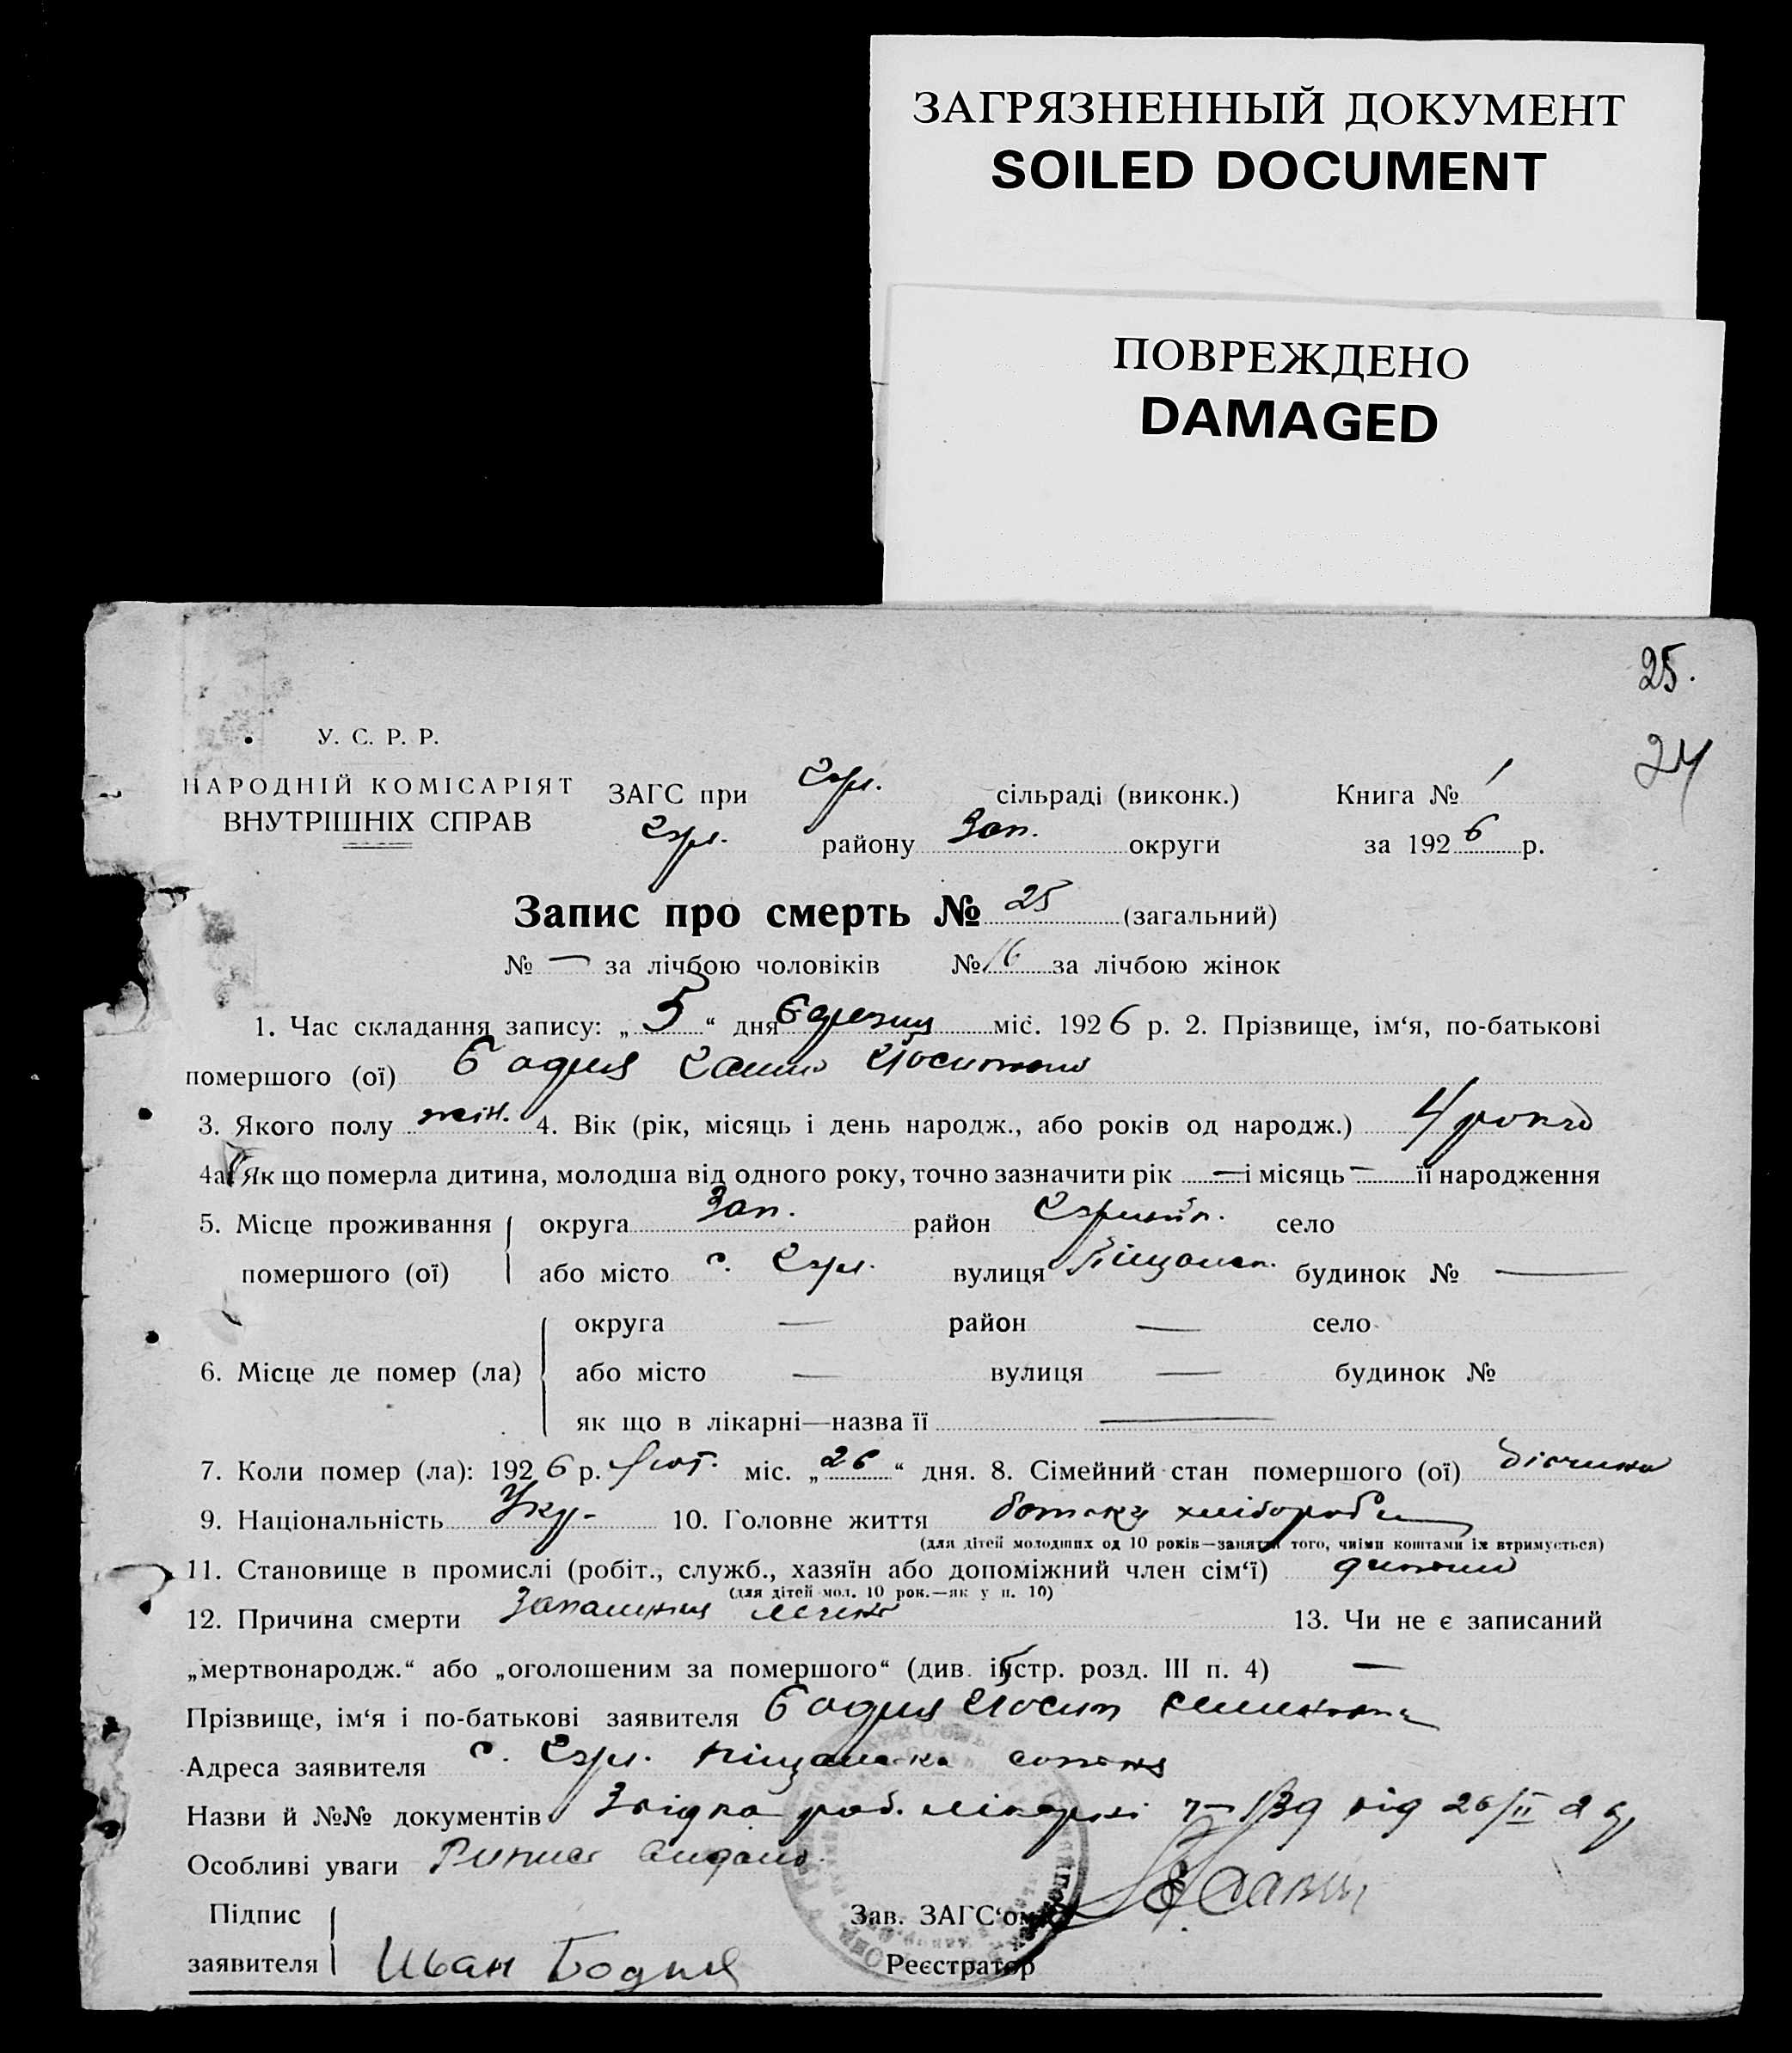 ЗАГРЯЗНЕННЫЙ ДОКУМЕНТ
SOILED DOCUMENT
ПОВРЕЖДЕНО
DAMAGED
25.
24
У. С. Р. Р.
НАРОДНІЙ КОМІСАРІЯТ
ВНУТРІШНІХ СПРАВ
ЗАГС при сільраді (виконк.) Книга № 1
району Зап. округи за 1926 р.
Запис про смерть № 25 (загальний)
№ — за лічбою чоловіків № 16 за лічбою жінок
1. Час складання запису: „5“ дня березня міс. 1926 р. 2. Прізвище, ім‘я, по-батькові
помершого (ої) Бодня Ганна
3. Якого полу жін. 4. Вік (рік, місяць і день народж., або років од народж.) 4 роки
4а Як що померла дитина, молодша від одного року, точно зазначити рік — і місяць — її народження
5. Місце проживання округа Зап. район село
помершого (ої) або місто с. вулиця будинок № —
округа — район — село
6. Місце де помер (ла) або місто — вулиця — будинок №
як що в лікарні—назва її —
7. Коли помер (ла): 1926 р. лют. міс. „26“ дня. 8. Сімейний стан помершого (ої)
9. Національність Укр. 10. Головне життя батька хлібороб
(для дітей молодших од 10 років—заняття того, чиїми коштами їх втримується)
11. Становище в промислі (робіт., служб., хазяїн або допоміжний член сім‘ї)
(для дітей мол. 10 рок.—як у п. 10)
12. Причина смерти Запалення 13. Чи не є записаний
„мертвонародж.“ або „оголошеним за помершого“ (див. інстр. розд. III п. 4) —
Прізвище, ім‘я і по-батькові заявителя Бодня Йосип
Адреса заявителя с.
Назви й №№ документів Звідка лікарні від 26/II 26
Особливі уваги
Підпис
заявителя Иван Бодня
Зав. ЗАГС‘ом
Реєстратор